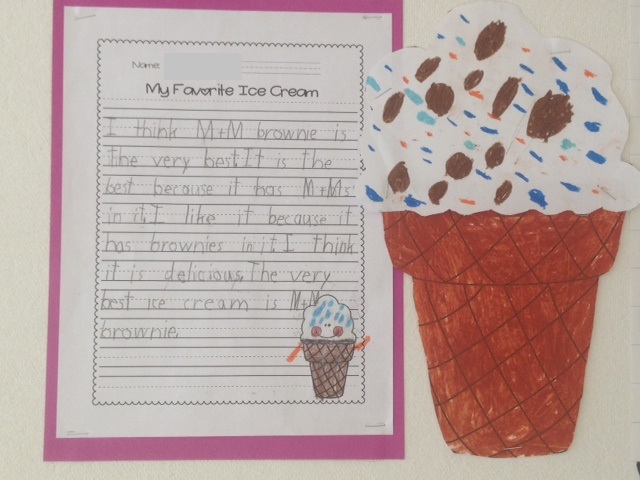 Name:
My Favorite Ice Cream
I think M+M brownie is
the very best. It is the
best because it has M+Ms
in it. I like it because it
has brownies in it. I think
it is delicious. The very
best ice cream is M+M
brownie.